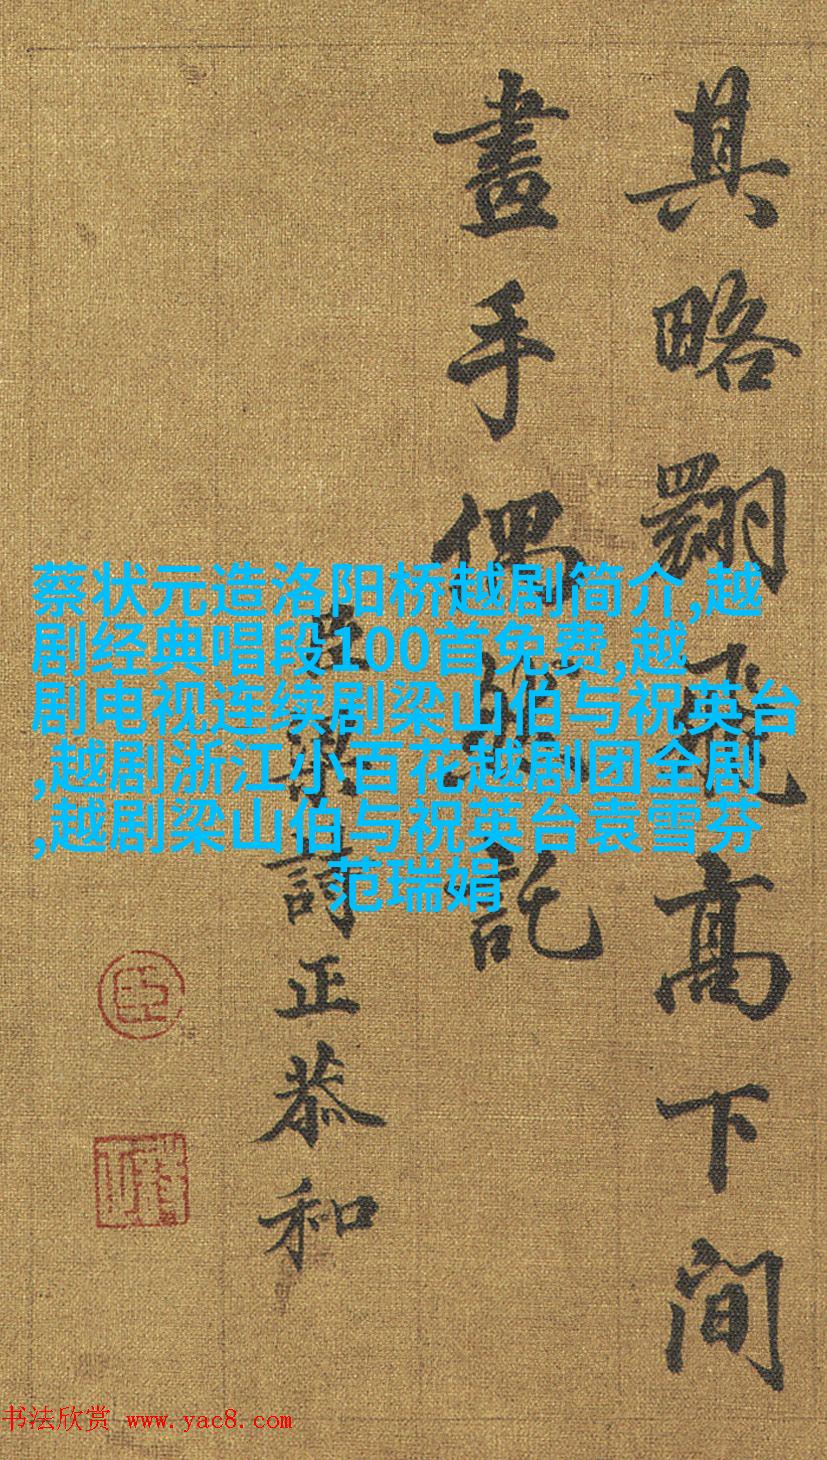 其略翾飛高下間
畫手偶能託
臣梁詩正恭和
臣
蔡状元造洛阳桥越剧简介,越
剧经典唱段100首免费,越
剧电视连续剧梁山伯与祝英台
,越剧浙江小百花越剧团全剧
,越剧梁山伯与祝英台袁雪芬
范瑞娟
书法欣赏 www.yac8.com